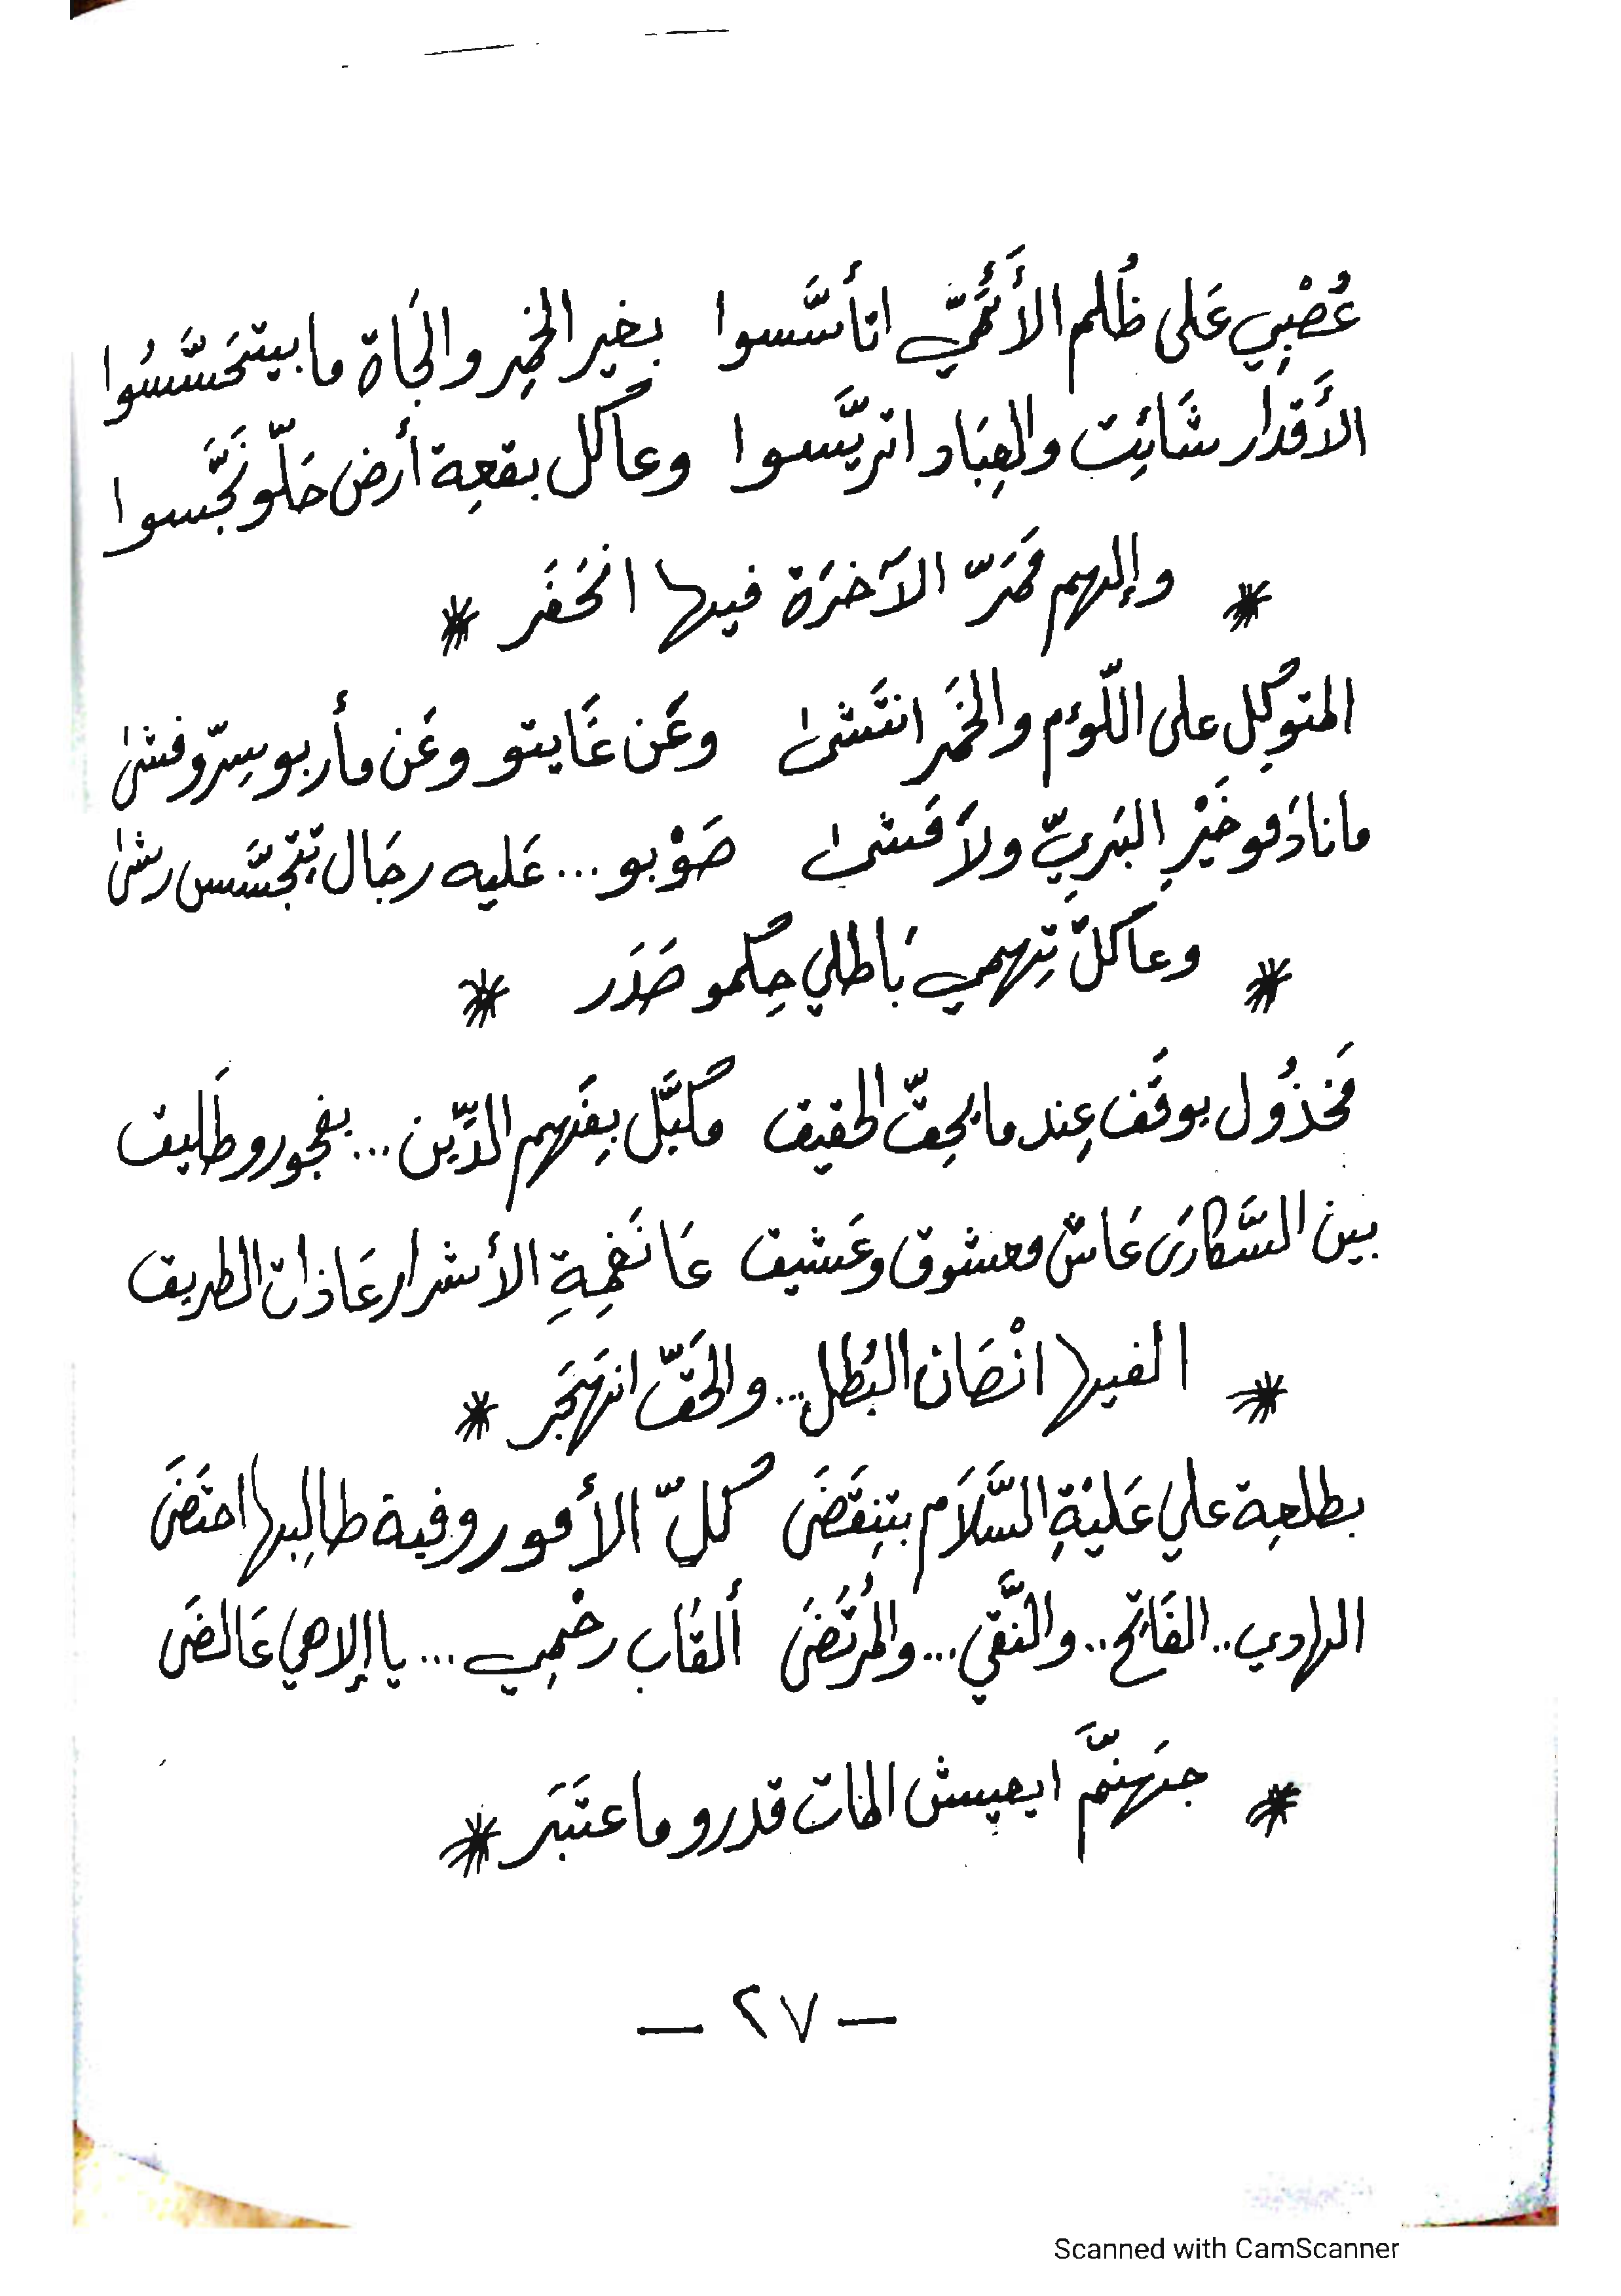 عُصْبِي عَلى ظُلم الأَئمِّي اتأسَّسوا بغير الخمِر والجَاة ما بيتحَسَّسُوا
الأَقدَار شَائِت والعِبَاد اتريَّسوا وعا كل بقعِة أرض حَلّو نَجَّسوا
* وإلهم مَمَرّ الآخرَة فيها انحَفَر *
المتوكِل على اللّؤم والخَمر انتَشىٰ وعَن غَايتو وعَن مأربو سِرّو فشىٰ
ما نادَمو خَيْرِ البَرِيّ ولاَ مَشىٰ صَوْبو... عَليه رجَال بِتجسَّس رشىٰ
* وعا كلّ تِهمي بَاطلي حِكمو صَدَر *
مَخذُول بوقَف عِند ما يحِقّ الحقيق مكبَّل بِفَهم الدِّين... بفجورو طَليق
بين السَّكارَى عَاش معشوق وعَشيق عَا نَغمِةِ الأشرار عَا ذات الطريق
* الفيها انْصَان البُطل... والحَقّ انهَجَر *
بطلعِة علي عَليْةِ السَّلاَم بتنِقَضَى كُلّ الأمور وفية طالِبها احتَضَى
الهادي.. الفَاتح.. والنَّقي... والمُرتَضَى ألقَاب رخمِي... يا إلاهي عَالضَى
* جهَنَّم ايعيش المات قدرو ما عتَبَر *
— ٢٧ —
Scanned with CamScanner